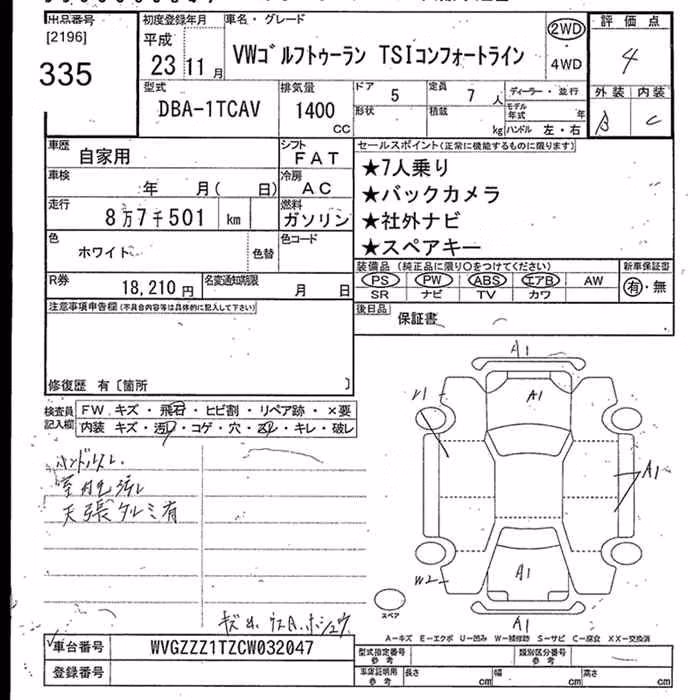 出品番号
[2196]
335
初度登録年月
平成
23 11月
車名・グレード
VWゴルフトゥーラン TSIコンフォートライン
2WD
4WD
評価点
4
外装 内装
B C
型式
DBA-1TCAV
排気量
1400
CC
ドア
5
定員
7人
形状
積載
kg
ディーラー・並行
モデル年式 年
ハンドル 左・右
車歴
自家用
シフト
FAT
車検
年 月( 日)
冷房
AC
走行
8万7千501 km
燃料
ガソリン
色
ホワイト
色替
色コード
R券
18,210円
名変通知期限
月 日
セールスポイント(正常に機能するものに限ります)
★7人乗り
★バックカメラ
★社外ナビ
★スペアキー
装備品(純正品に限り○をつけてください)
PS PW ABS エアB AW
SR ナビ TV カワ
新車保証書
有・無
後日品
保証書
注意事項申告欄(不具合内容等は具体的に記入して下さい)
修復歴 有〔箇所 〕
検査員
記入欄
FW キズ・飛石・ヒビ割・リペア跡・×要
内装 キズ・汚レ・コゲ・穴・スレ・キレ・破レ
ハンドルスレ
室内色汚レ
天張タルミ有
A1
A1
A1
A1
A1
W2
スペア
A-キズ E-エクボ U-凹み W-補修跡 S-サビ C-腐食 XX-交換済
車台番号
WVGZZZ1TZCW032047
登録番号
型式指定番号
参考
類別区分番号
参考
車庫証明用
参考
長さ cm 幅 cm 高さ cm